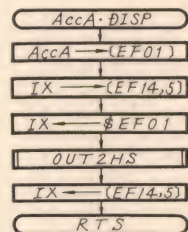 AccA・DISP
AccA → (EF01)
IX → (EF14,5)
IX ← $EF01
OUT2HS
IX ← (EF14,5)
RTS